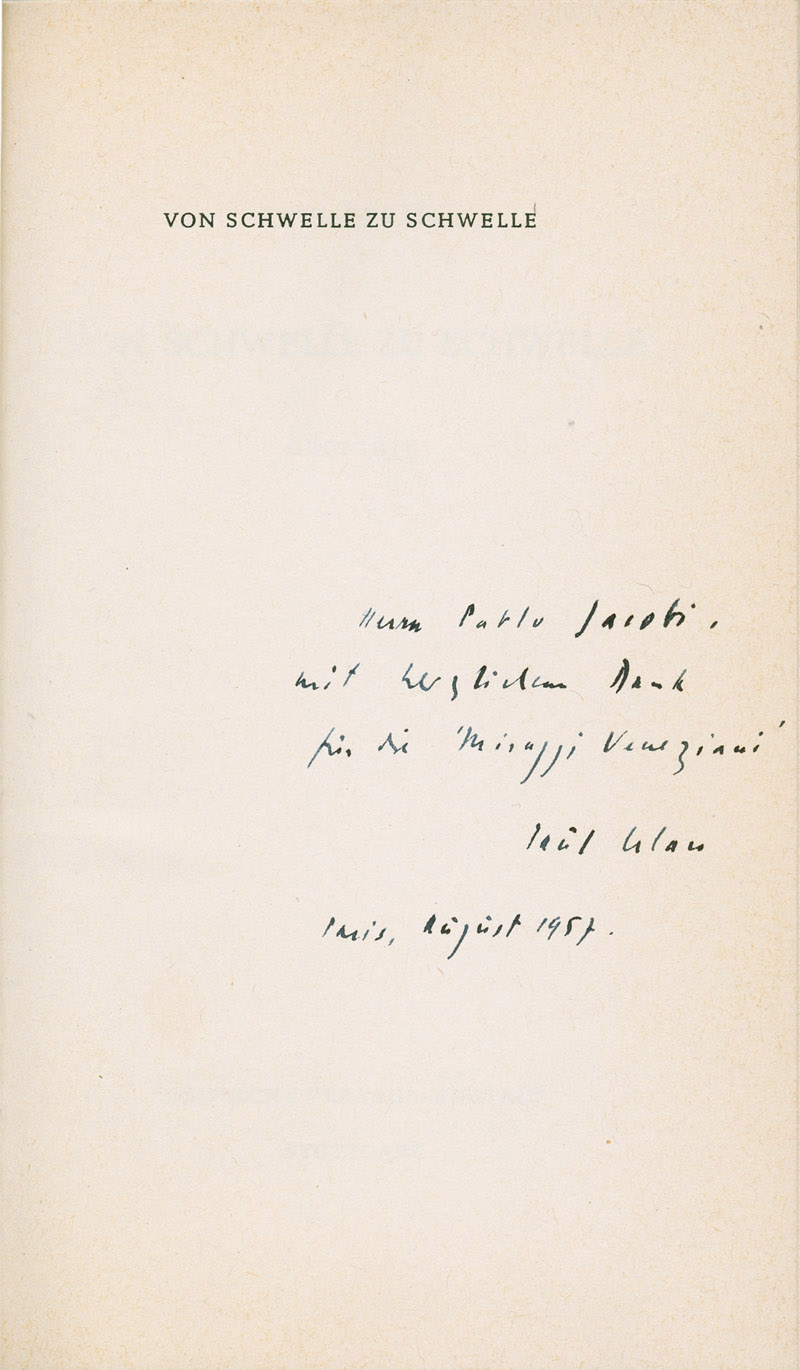 VON SCHWELLE ZU SCHWELLE
Herrn Pablo Jacobi,
mit herzlichem Dank
für die 'Miraggi Veneziani'
Paul Celan
Paris, August 1957.